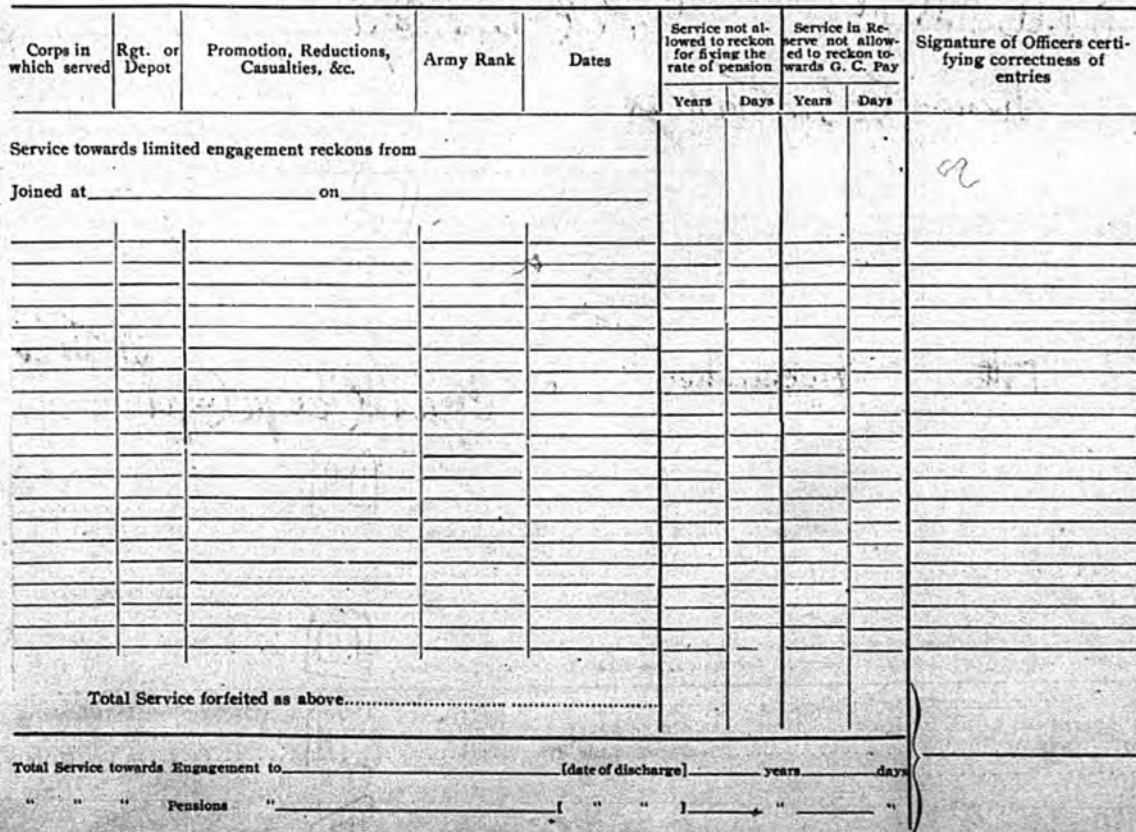 Corps in which served
Rgt. or Depot
Promotion, Reductions, Casualties, &c.
Army Rank
Dates
Service not al-
lowed to reckon
for fixing the
rate of pension
Service in Re-
serve not allow-
ed to reckon to-
wards G. C. Pay
Signature of Officers certi-
fying correctness of
entries
Years Days Years Days
Service towards limited engagement reckons from
Joined at on
Total Service forfeited as above
Total Service towards Engagement to [date of discharge] years days
" " " Pensions " [ " " ] " "